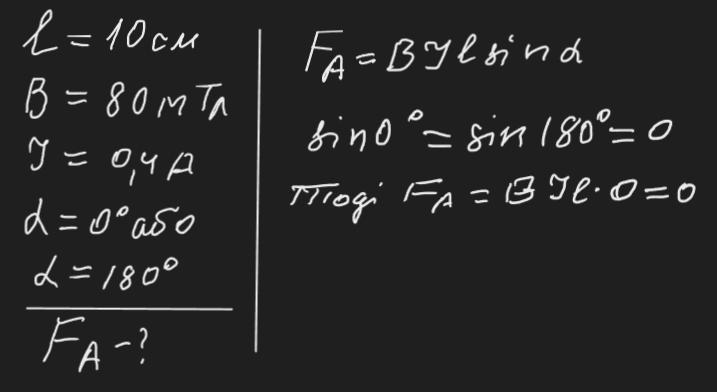 l = 10 см
B = 80 мТл
I = 0,4 А
α = 0° або
α = 180°
F_A - ?
F_A = B I l sin α
sin 0° = sin 180° = 0
Тоді F_A = B I l · 0 = 0